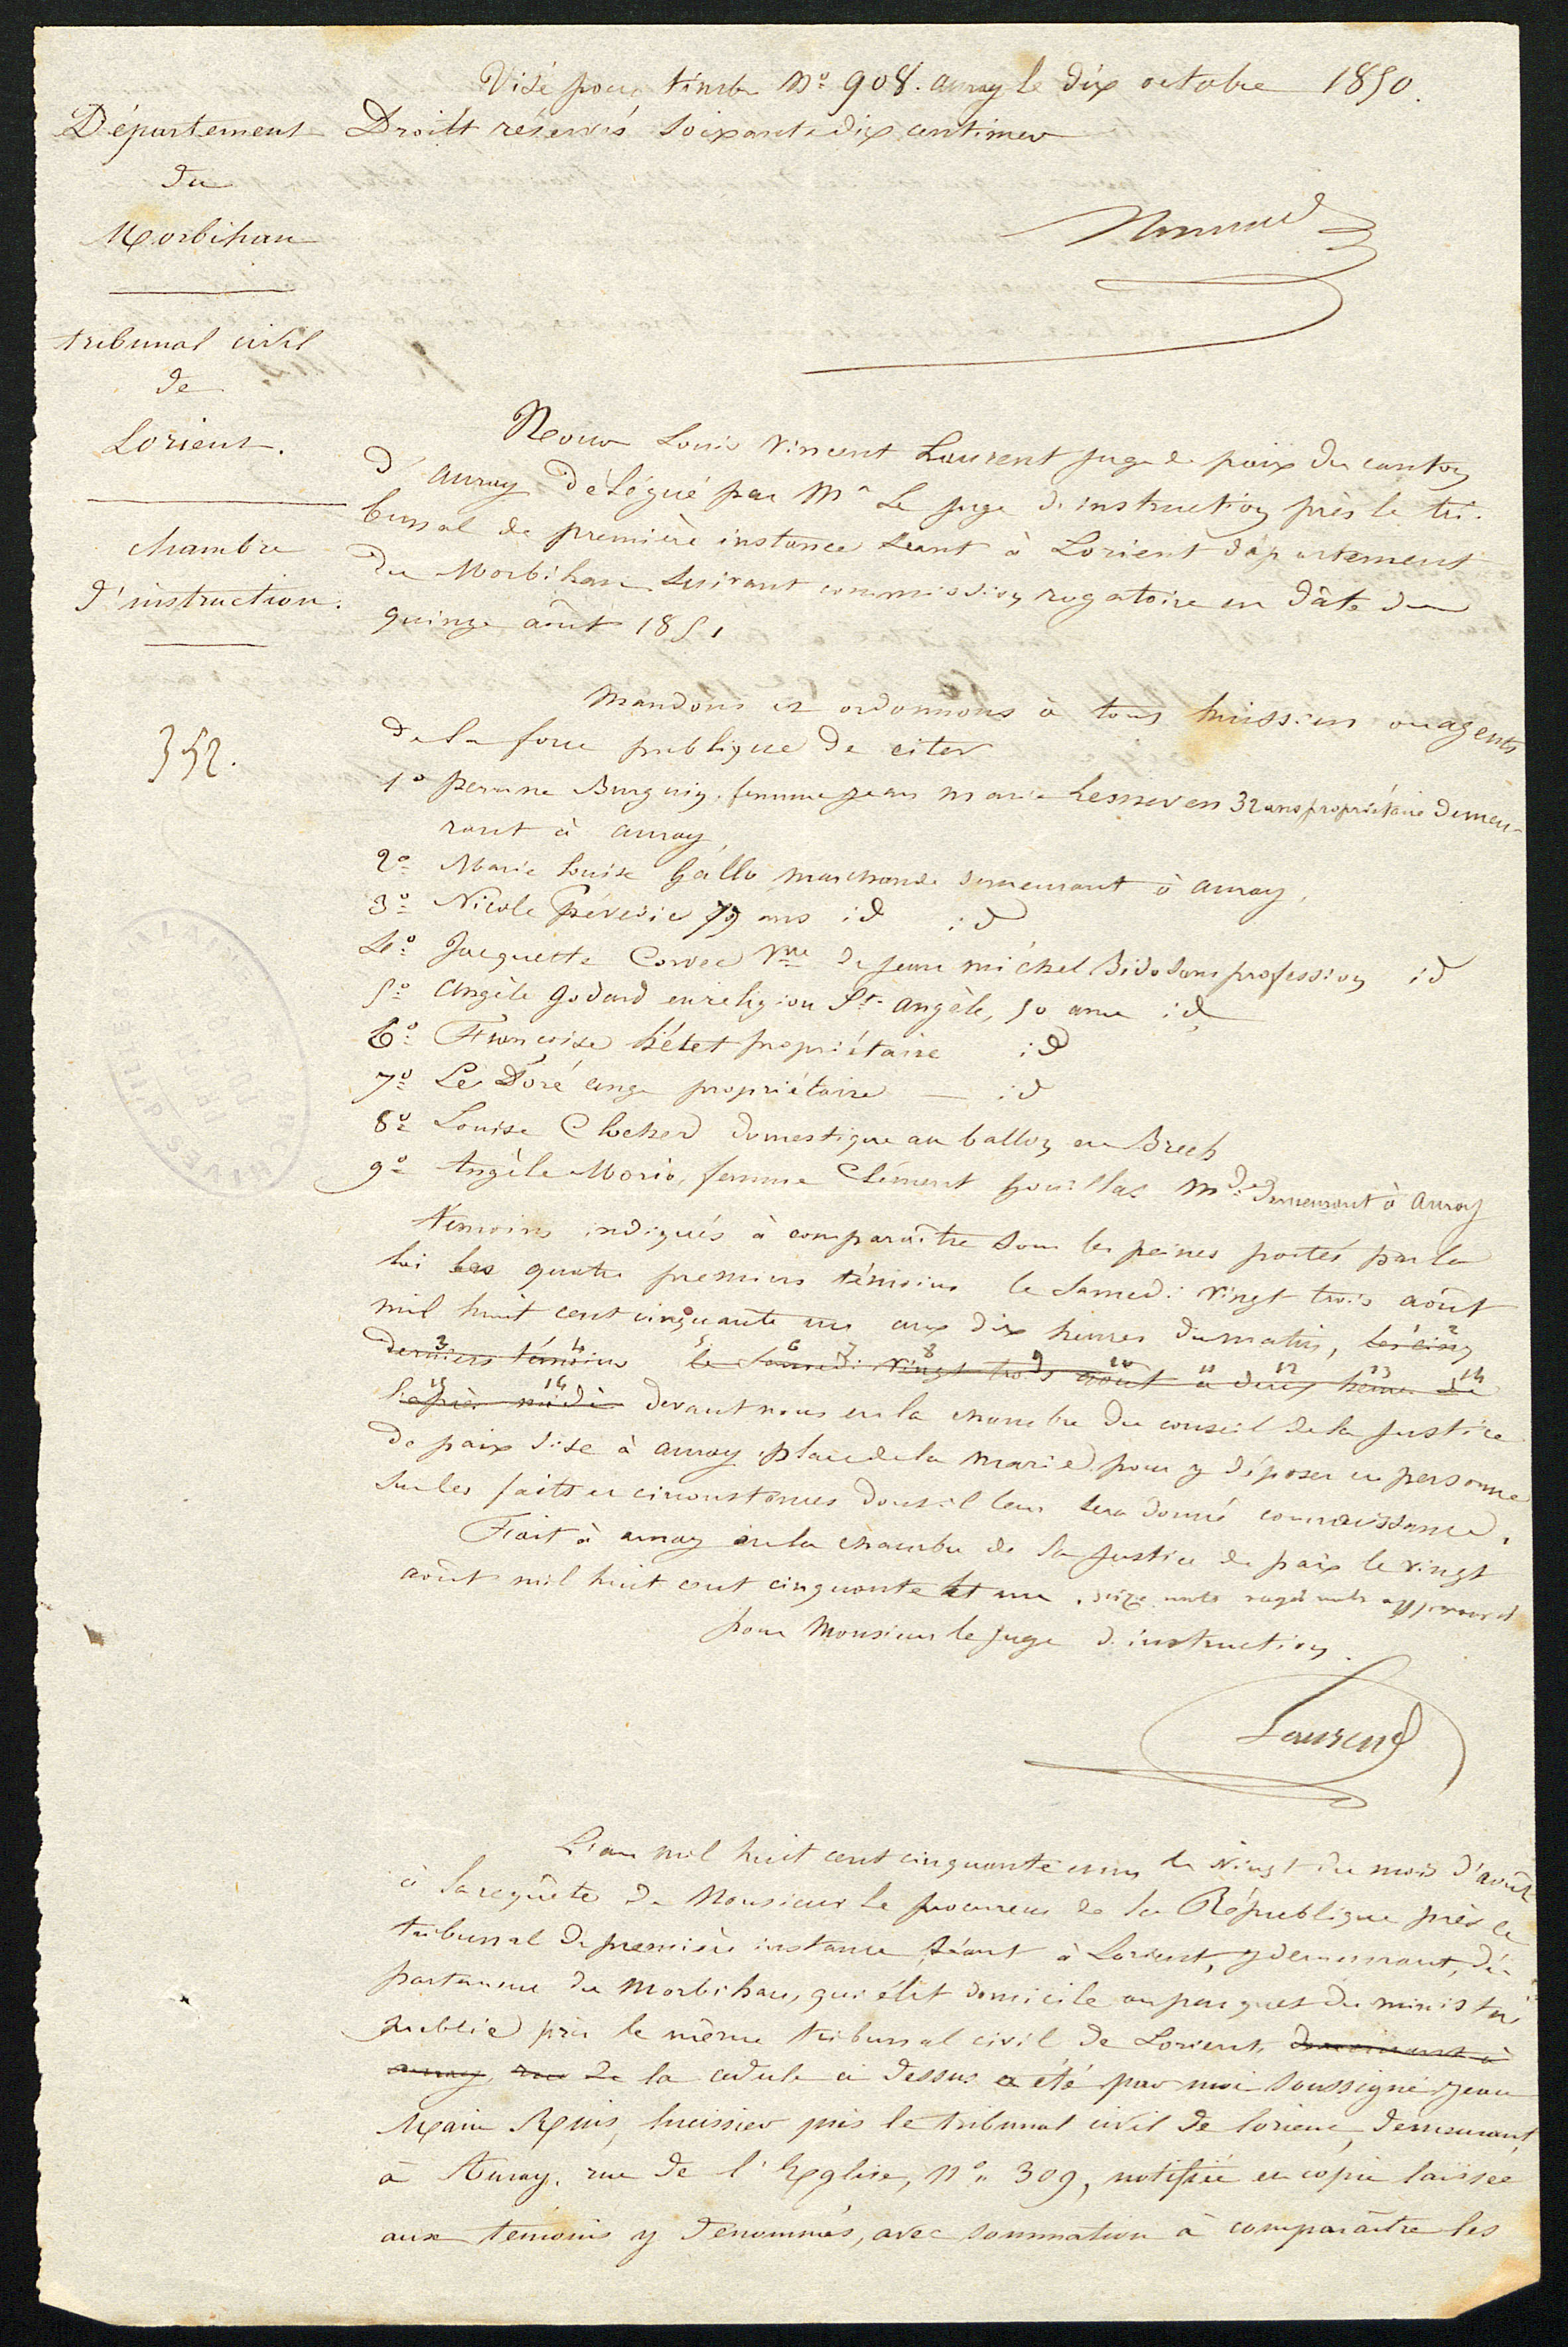 Visé pour timbre N° 908. auray le dix octobre 1850.
Droits réservés soixante dix centimes
Département
du
Morbihan
tribunal civil
de
Lorient.
chambre
d'instruction.
352.
Nous Louis Vincent Laurent juge de paix du canton
d'auray délégué par Mr Le juge d'instruction près le tri-
bunal de première instance séant à Lorient département
du Morbihan suivant commission rogatoire en dâte du
quinze août 1851
Mandons et ordonnons à tous huissiers ou agents
de la force publique de citer
1° perrine Burguin, femme jean marie Lesneven 32 ans propriétaire demeu-
rant à auray
2° Marie Louise Gallo marchande demeurant à auray,
3° Nicole 79 ans id id
4° Jacquette Corvec Vve de jean michel Bido sans profession id
5° Angèle Godard en religion Ste angèle, 50 ans id
6° Françoise propriétaire id
7° Le Doré ange propriétaire — id
8° Louise Clocher domestique au ballon en Brech
9° Angèle Morio, femme Clément Mde demeurant à auray
témoins indiqués à comparaître sous les peines portés par la
loi les quatre premiers témoins le samedi vingt trois août
mil huit cent cinquante un aux dix heures du matin, les cinq
derniers témoins le samedi vingt trois août à deux heures de
l'après midi devant nous en la chambre du conseil de la justice
de paix sise à auray place de la mairie pour y déposer en personne
sur les faits et circonstances dont il leur sera donné connaissance.
Fait à auray en la chambre de la justice de paix le vingt
août mil huit cent cinquante et un. seize mots rayés nuls approuvés
pour Monsieur le juge d'instruction.
Laurent
L'an mil huit cent cinquante un le vingt du mois d'août
à la requête de Monsieur le procureur de la République près le
tribunal de première instance séant à Lorient, y demeurant, dé-
partement du Morbihan, qui élit domicile au parquet du ministère
public près le même tribunal civil de Lorient, demeurant à
auray, rue de la cédule ci dessus a été par moi soussigné jean
Marie huissier près le tribunal civil de lorient, demeurant
à Auray, rue de l'Eglise, n° 309, notifiée en copie laissée
aux témoins y dénommés, avec sommation à comparaître les